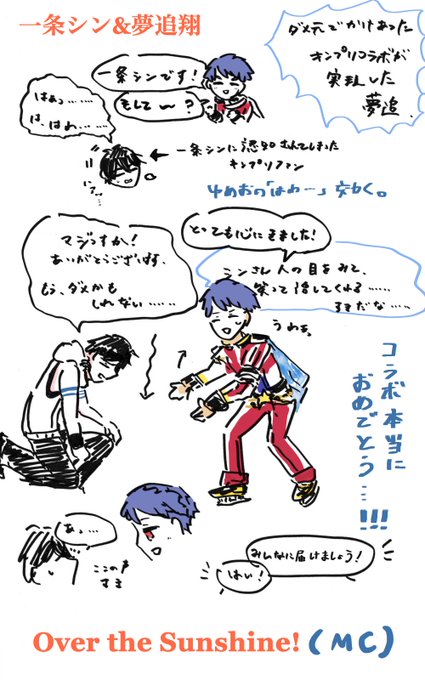 一条シン&夢追翔
ダメ元でかけあった
キンプリコラボが
実現した
夢追
一条シンです!
もしも~?
はぁっ……
は、はわ……
← 一条シンに認知されてしまった
キンプリファン
ゆめおの「はわ…」交わく。
マジっすか!
ありがとうございます、
もう、ダメかも
しれない……
とっても心にきました!
シンさん人の目をみて、
笑って話してくれる……
すきだな……
うわぁ。
コラボ本当に
おめでとう…!!!
あっ…
ここの声
すき
みんなに届けましょう!
はい!
Over the Sunshine!(MC)